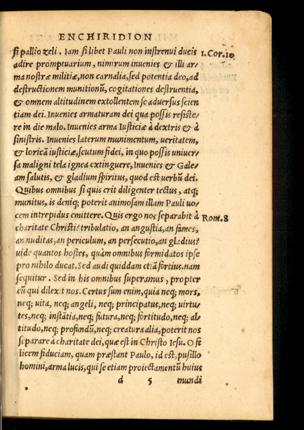 ENCHIRIDION
si pallio zeli. Iam si libet Pauli non instrenui ducis 1.Cor.10
adire promptuarium, nimirum inuenies & illi ar
ma nostræ militiæ, non carnalia, sed potentia deo, ad
destructionem munitionũ, cogitationes destruentia,
& omnem altitudinem extollentem se aduersus scien
tiam dei. Inuenies armaturam dei qua possis resiste/
re in die malo. Inuenies arma Iusticiæ à dextris & à
sinistris. Inuenies laterum munimentum, ueritatem,
& loricã iusticiæ, scutum fidei, in quo possis uniuer
sa maligni tela ignea extinguere, Inuenies & Gale
am salutis, & gladium spiritus, quod est uerbũ dei.
Quibus omnibus si quis erit diligenter tectus, atq;
munitus, is deniq; poterit animosam illam Pauli uo
cem intrepidus emittere. Quis ergo nos separabit à Rom.8
charitate Christi? tribulatio, an angustia, an fames,
an nuditas, an periculum, an persecutio, an gladius?
uide quantos hostes, quàm omnibus formidatos ipse
pro nihilo ducat. Sed audi quiddam etiã fortius. nam
sequitur. Sed in his omnibus superamus, propter
eũ qui dilexit nos. Certus sum enim, quia neq; mors,
neq; uita, neq; angeli, neq; principatus, neq; uirtu/
tes, neq; instãtia, neq; futura, neq; fortitudo, neq; al/
titudo, neq; profundũ, neq; creatura alia, poterit nos
separare à charitate dei, quæ est in Christo Iesu. O fœ
licem fiduciam, quam præstant Paulo, id est, pusillo
homini, arma lucis, qui se etiam proiectamentũ huius
d 5 mundi